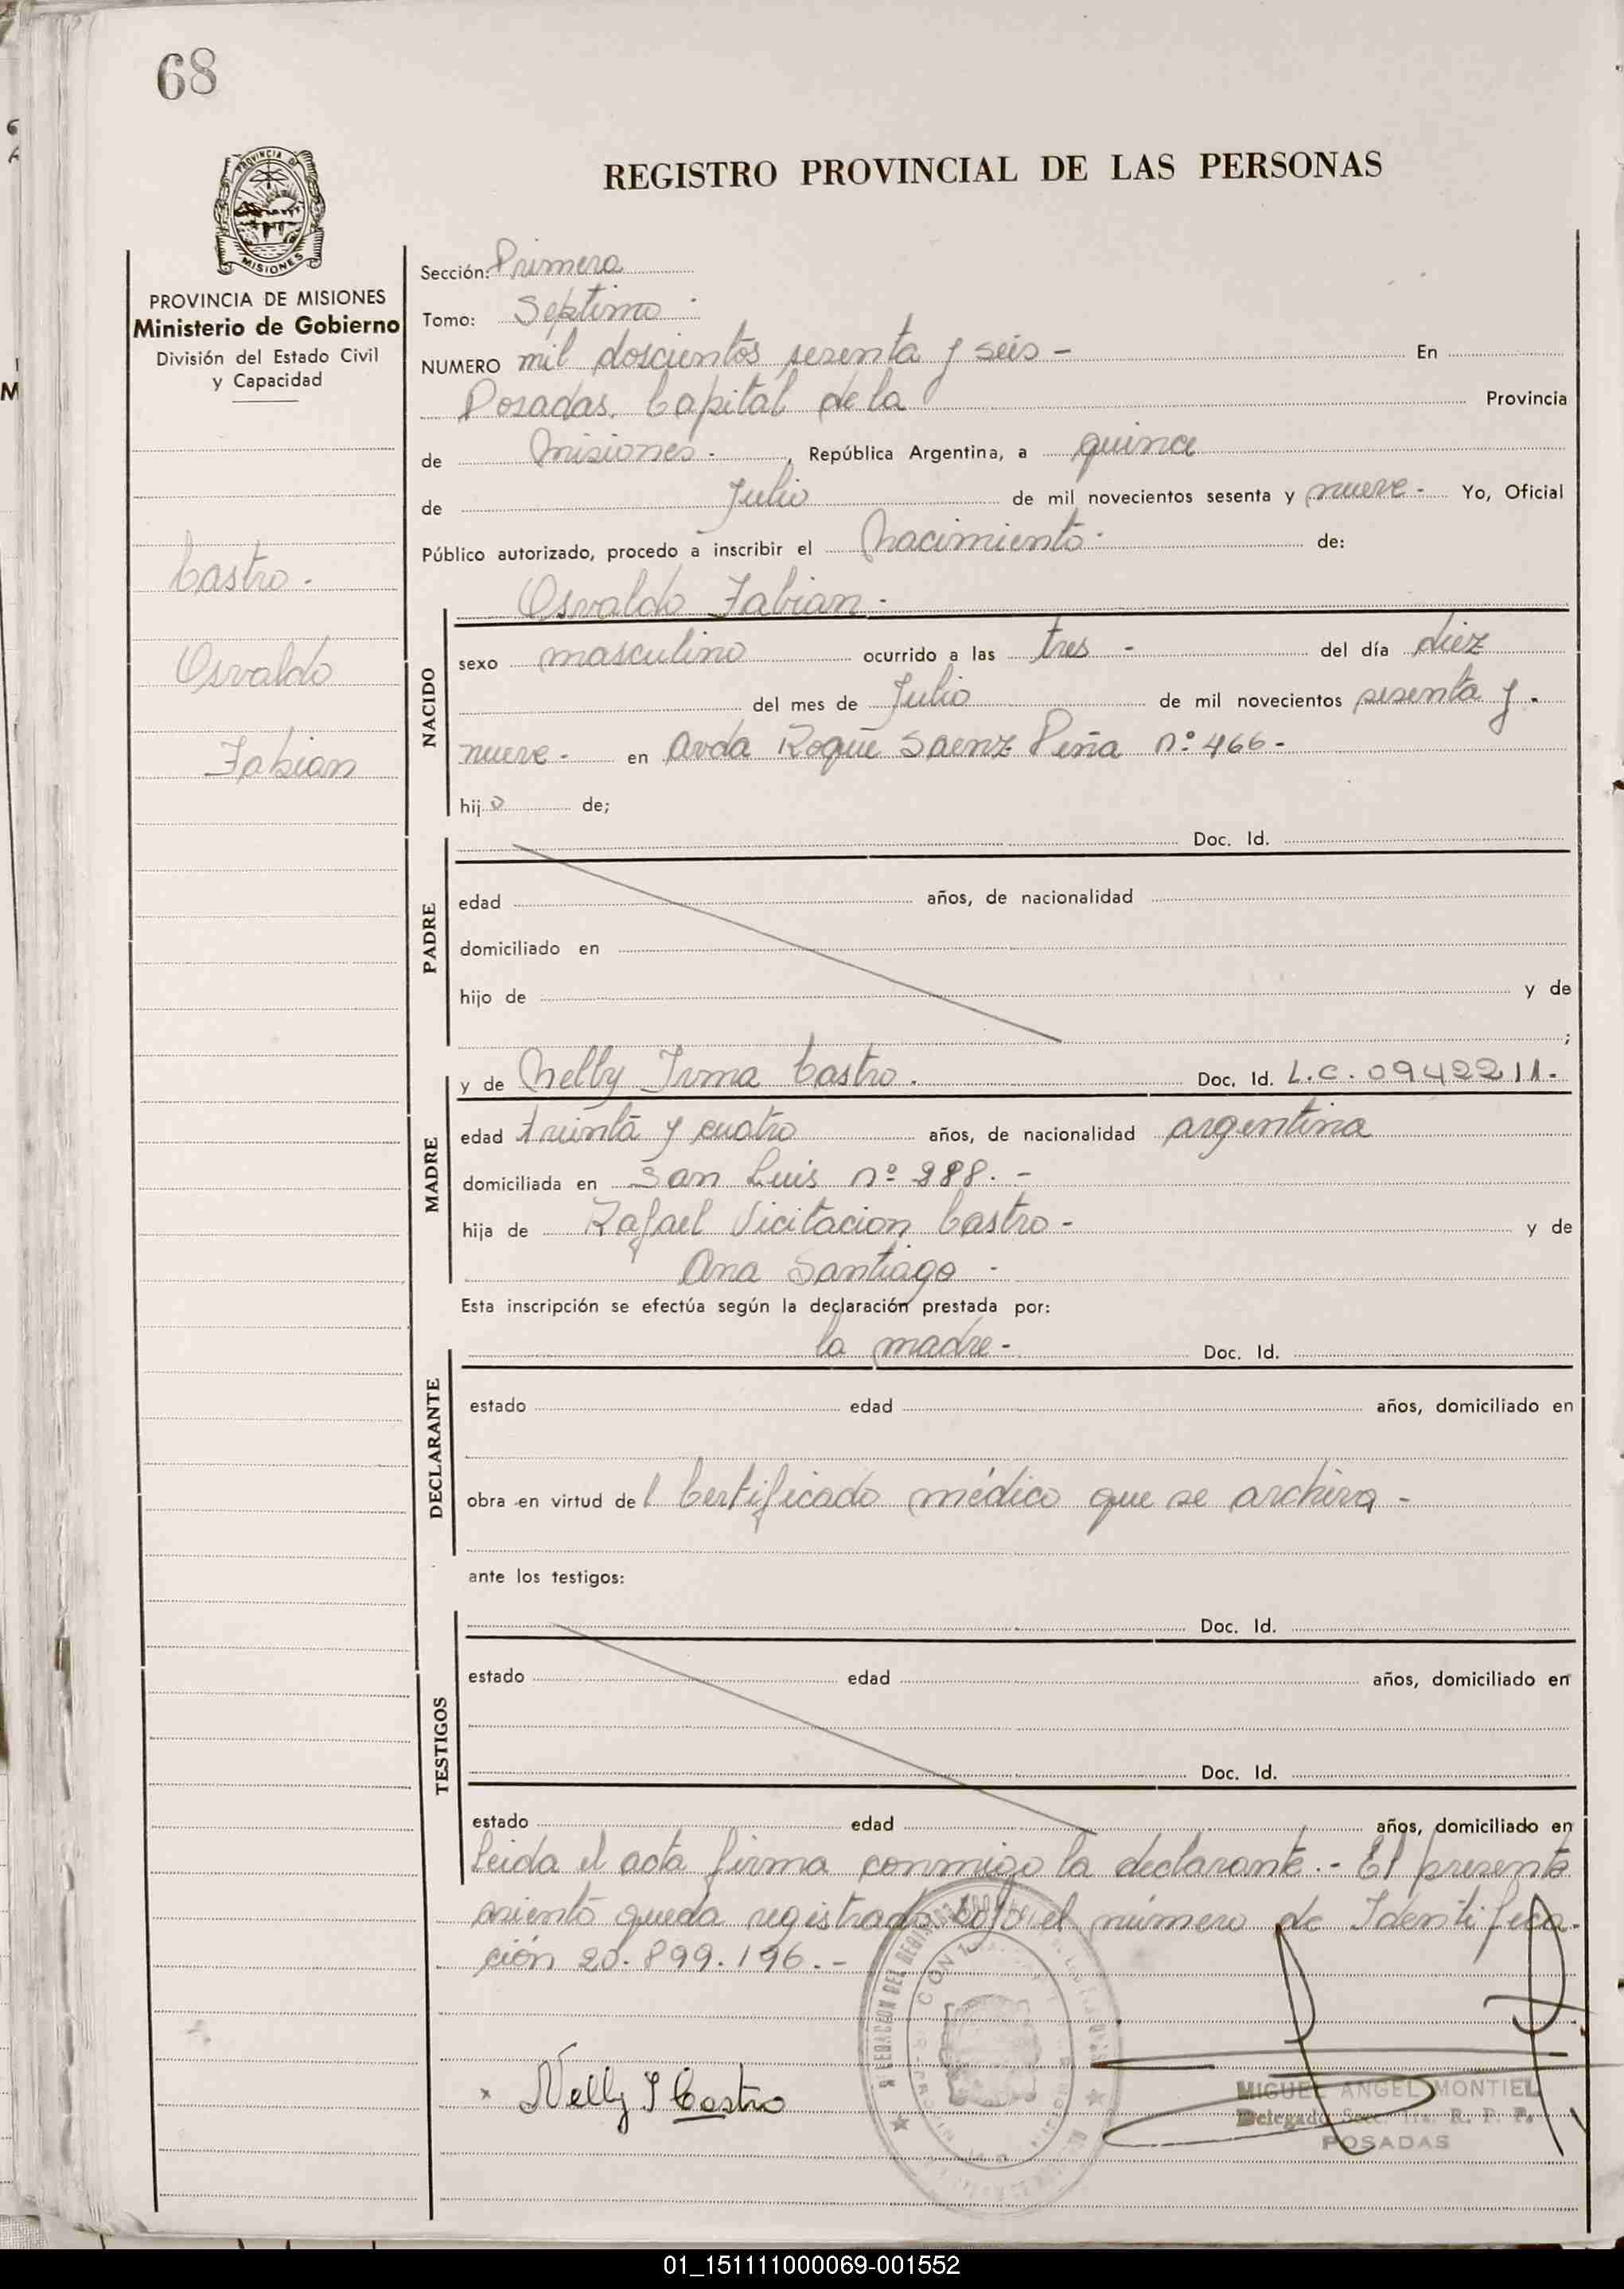 68
REGISTRO PROVINCIAL DE LAS PERSONAS
PROVINCIA DE MISIONES
Ministerio de Gobierno
División del Estado Civil
y Capacidad
Castro.
Osvaldo
Fabian
Sección: Primera
Tomo: Septimo
NUMERO mil doscientos sesenta y seis - En
Posadas. Capital de la Provincia
de Misiones - , República Argentina, a quince
de Julio de mil novecientos sesenta y nueve - Yo, Oficial
Público autorizado, procedo a inscribir el Nacimiento - de:
Osvaldo Fabian -
NACIDO
sexo masculino ocurrido a las tres - del día diez
del mes de Julio de mil novecientos sesenta y -
nueve - en Avda Roque Saenz Peña nº 466 -
hijo de;
PADRE
Doc. Id.
edad años, de nacionalidad
domiciliado en
hijo de y de
;
MADRE
y de Nelly Irma Castro. Doc. Id. L.C. 0942211.-
edad trienta y cuatro años, de nacionalidad argentina
domiciliada en San Luis nº 288. -
hija de Rafael Vicitacion Castro - y de
Ana Santiago -
Esta inscripción se efectúa según la declaración prestada por:
DECLARANTE
la madre - Doc. Id.
estado edad años, domiciliado en
obra en virtud del Certificado médico que se archiva -
ante los testigos:
TESTIGOS
Doc. Id.
estado edad años, domiciliado en
Doc. Id.
estado edad años, domiciliado en
Leida el acta firma conmigo la declarante.- El presente
asiento queda registrado bajo el número de Identifica-
ción 20.899.196.-
x Nelly I Castro
MIGUEL ANGEL MONTIEL
Delegado Secc. 1ra. R. P. P.
POSADAS
01_151111000069-001552